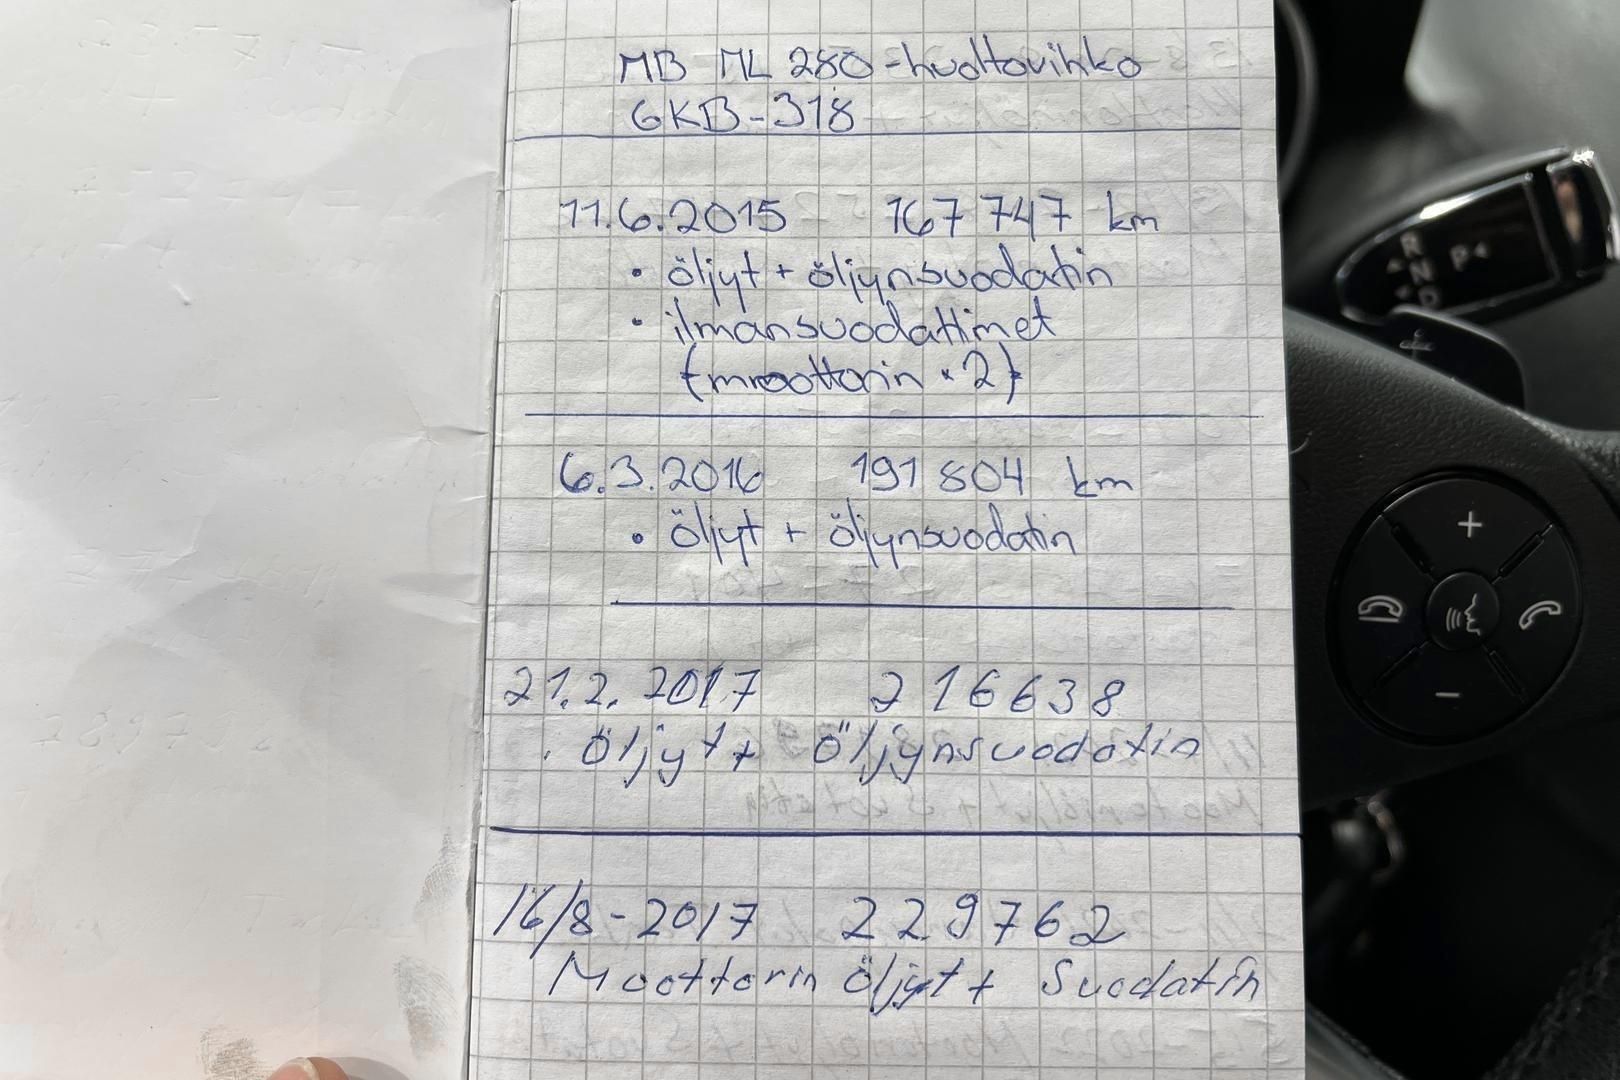 MB ML 280 - huoltovihko
GKB-318
11.6.2015 167 747 km
• öljyt + öljynsuodatin
• ilmansuodattimet
(moottorin x 2)
6.3.2016 191 804 km
• öljyt + öljynsuodatin
21.2.2017 216638
. Öljyt + Öljynsuodatin
16/8-2017 229762
Moottorin Öljyt + Suodatin
R
N P
D
+
-